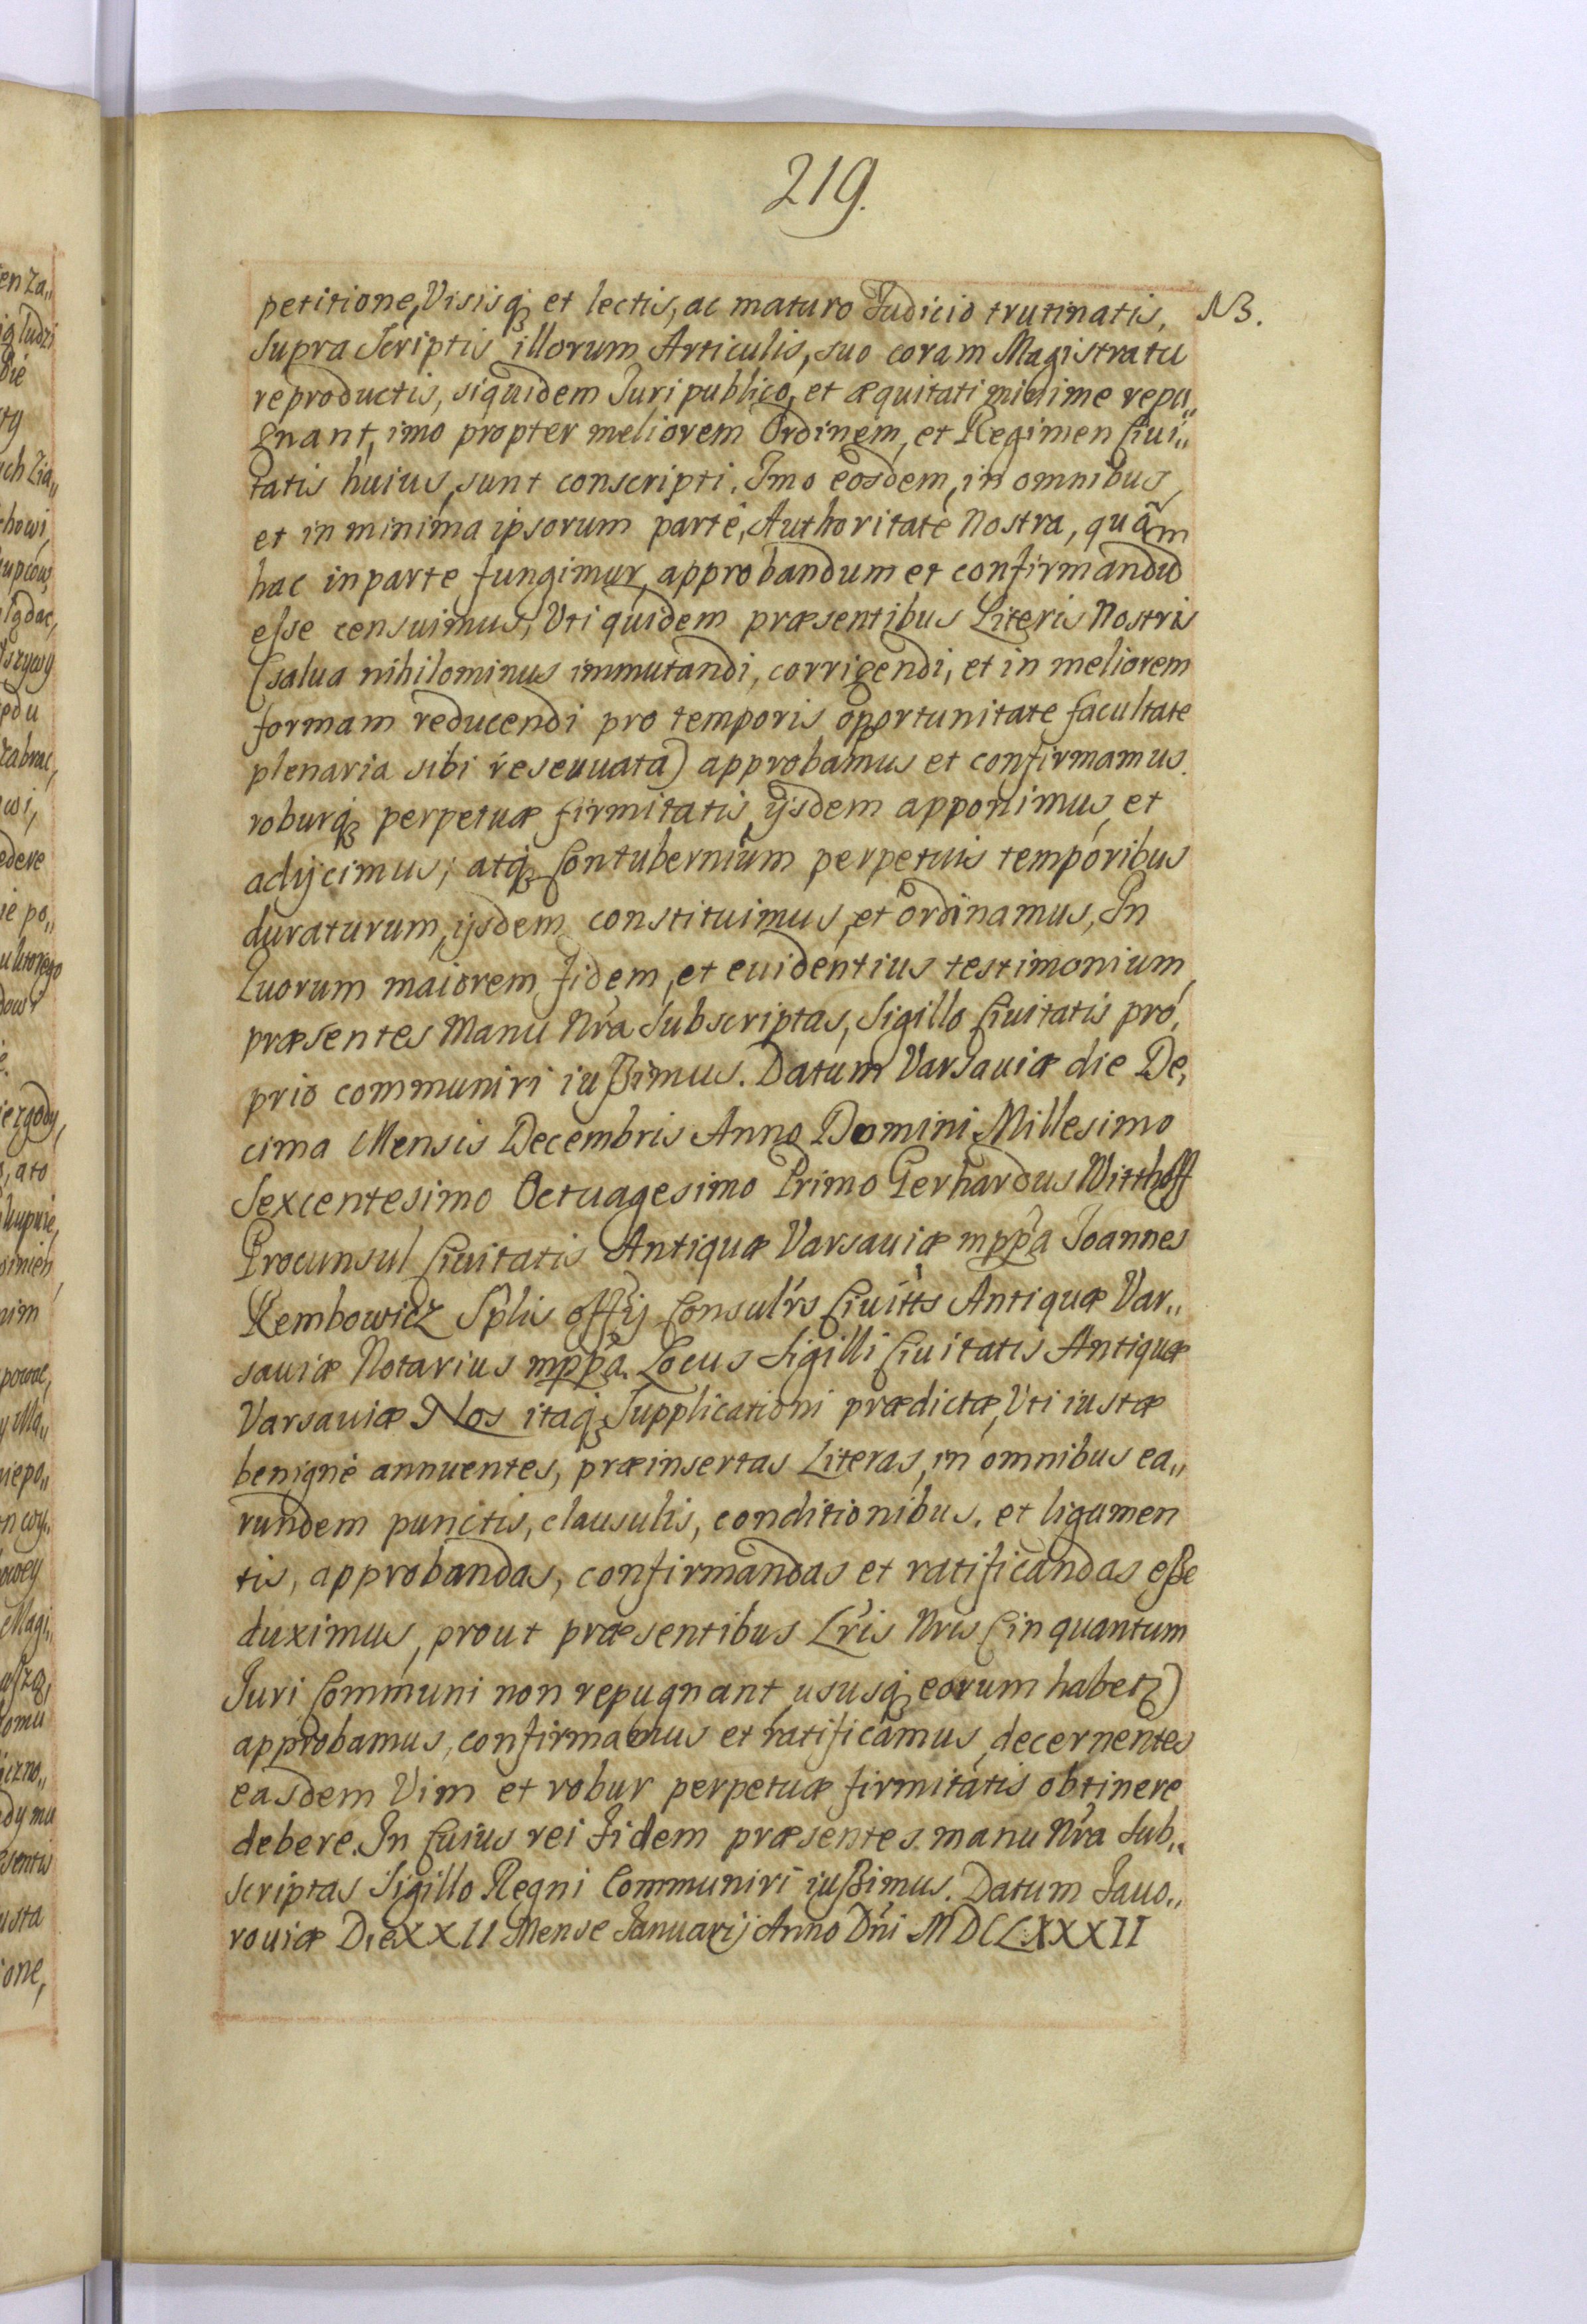 219.
petitione, Visisq; et lectis, ac maturo Judicio trutinatis, NB.
Supra Scriptis illorum Articulis, suo coram Magistratu
reproductis, siquidem Juri publico, et æquitati minime repu„
gnant, imo propter meliorem Ordinem, et Regimen Ciui„
tatis huius, sunt conscripti. Imo eosdem, in omnibus,
et in minima ipsorum parte, Authoritate Nostra, quâm
hac in parte fungimur, approbandum et confirmandũ
esse censuimus, Vti quidem præsentibus Literis Nostris
(salua nihilominus immutandi, corrigendi, et in meliorem
formam reducendi pro temporis opportunitate facultate
plenaria sibi reseruata) approbamus et confirmamus.
roburq; perpetuæ firmitatis, ijsdem apponimus, et
adijcimus; atq; Contubernium perpetuis temporibus
duraturum, ijsdem constituimus, et ordinamus, In
Quorum maiorem fidem, et euidentius testimonium,
præsentes Manu Nr̃a Subscriptas, Sigillo Ciuitatis pro,
prio communiri iußimus. Datum Varsauiæ die De,
cima Mensis Decembris Anno Domini Millesimo
Sexcentesimo Octuagesimo Primo Gerhardus Witthoff
Procunsul Ciuitatis Antiquæ Varsauiæ mppa Joannes
Rembowicz Sp̃lis offy Consulr̃s Ciuitt̃s Antiquæ Var„
sauiæ Notarius mppa. Locus Sigilli Ciuitatis Antiquæ
Varsauiæ Nos itaq; Supplicationi prædictæ, Vti iustæ
benignè annuentes, præinsertas Literas, in omnibus ea„
rundem punctis, clausulis, conditionibus, et ligamen
tis, approbandas, confirmandas et ratificandas eße
duximus, prout præsentibus Lr̃is Nris (in quantum
Juri Communi non repugnant, ususq; eorum habetꝫ)
approbamus, confirmamus et ratificamus, decernentes
easdem Vim et robur perpetuæ firmitatis obtinere
debere. In Cuius rei fidem præsentes manu Nr̃a Sub„
scriptas Sigillo Regni Communiri iußimus. Datum Jauo„
rouiæ Die XXII Mense Januarij Anno Dñi MDCLXXXII